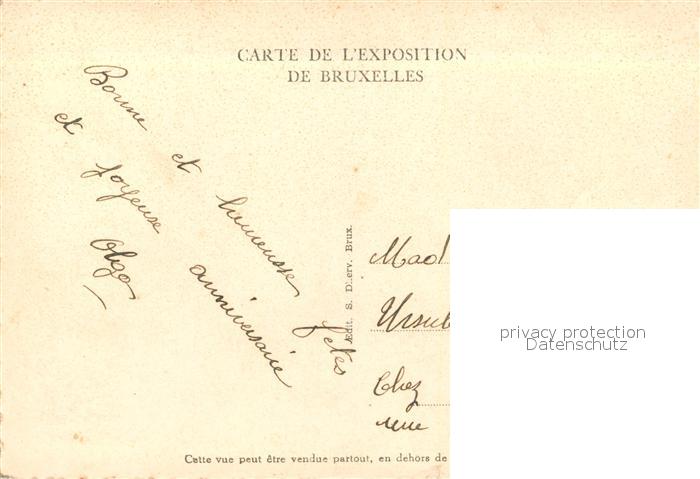 CARTE DE L'EXPOSITION
DE BRUXELLES
Bonne et heureuse fêtes
et joyeuse anniversaire
Olga
Ædit. S. D.erv. Brux.
Mad
Ursule
Chez
rue
privacy protection
Datenschutz
Cette vue peut être vendue partout, en dehors de